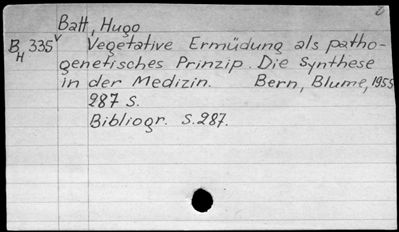 Batt, Hugo
B H 335 v Vegetative Ermüdung als patho-
genetisches Prinzip. Die Synthese
in der Medizin. Bern, Blume, 1955
287 S.
Bibliogr. S. 287.